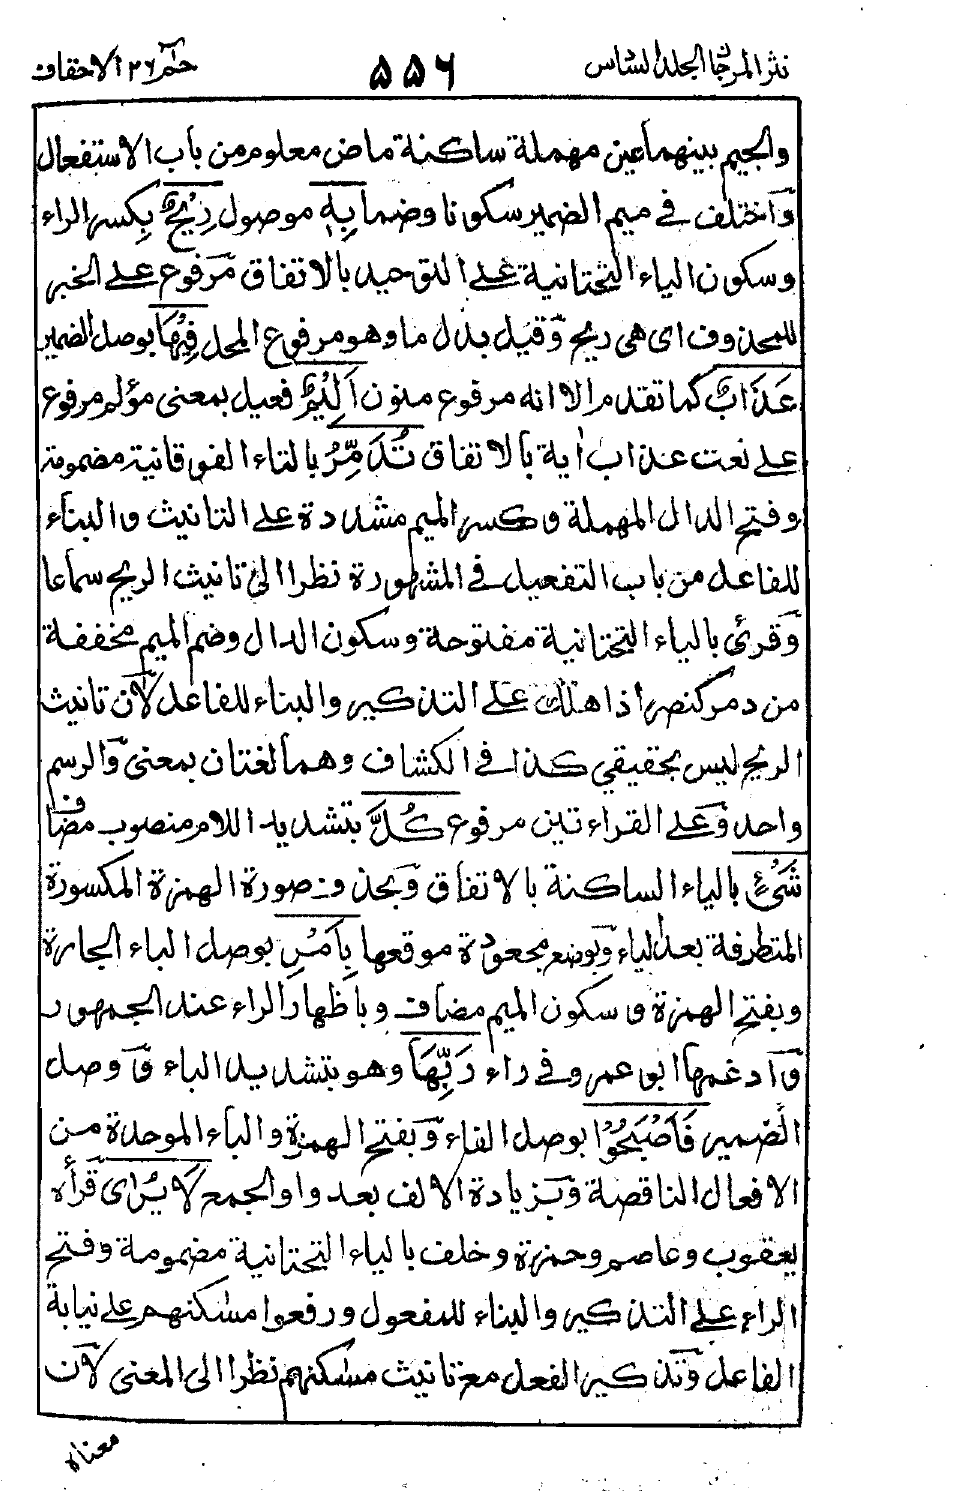 نثر المرجان الجلد السادس
٥٥٦
حم ٢٦ الاحقاف
والجيم بينهما عين مهملة ساكنة ماض معلوم من باب الاستفعال
وَاختلف في ميم الضمير سكونا وضما بِهٖ موصول رِيْحٌ بكسر الراء
وسكون الياء التحتانية على التوحيد بالاتفاق مرفوع على الخبر
للمحذوف اى هى ريح وَقيل بدل ما وهو مرفوع المحل فِيْهَا بوصل الضمير
عَذَابٌ كما تقدم الا انه مرفوع منون اَلِيْمٌ فعيل بمعنى مؤلم مرفوع
على نعت عذاب اٰية بالاتفاق تُدَمِّرُ بالتاء الفوقانية مضمومة
وفتح الدال المهملة وكسر الميم مشددة على التانيث والبناء
للفاعل من باب التفعيل في المشهورة نظرا الى تانيث الريح سماعا
وَقرئ بالياء التحتانية مفتوحة وسكون الدال وضم الميم مخففة
من دمر كنصر اذا هلك على التذكير والبناء للفاعل لاَن تانيث
الريح ليس بحقيقي كذا في الكشاف وهما لغتان بمعنى وَالرسم
واحد وَعلى القراءتين مرفوع كُلَّ بتشديد اللام منصوب مضاف
شَىْءٍ بالياء الساكنة بالاتفاق وَبحذف صورة الهمزة المكسورة
المتطرفة بعد الياء وَبوضع مجعودة موقعها بِاَمْرِ بوصل الباء الجارة
وبفتح الهمزة وسكون الميم مضاف وباظهار الراء عند الجمهور
وَادغمها ابو عمرو في راء رَبِّهَا وهو بتشديد الباء وَوصل
الضمير فَاَصْبَحُوْا بوصل الفاء وَبفتح الهمزة والباء الموحدة من
الافعال الناقصة وَبزيادة الالف بعد واو الجمع لَا يُرٰى قرأه
يعقوب وعاصم وحمزة وخلف بالياء التحتانية مضمومة وفتح
الراء على التذكير والبناء للمفعول ورفعوا مسٰكنهم على نيابة
الفاعل وَتذكير الفعل مع تانيث مسٰكنهم نظرا الى المعنى لاَن
معناه